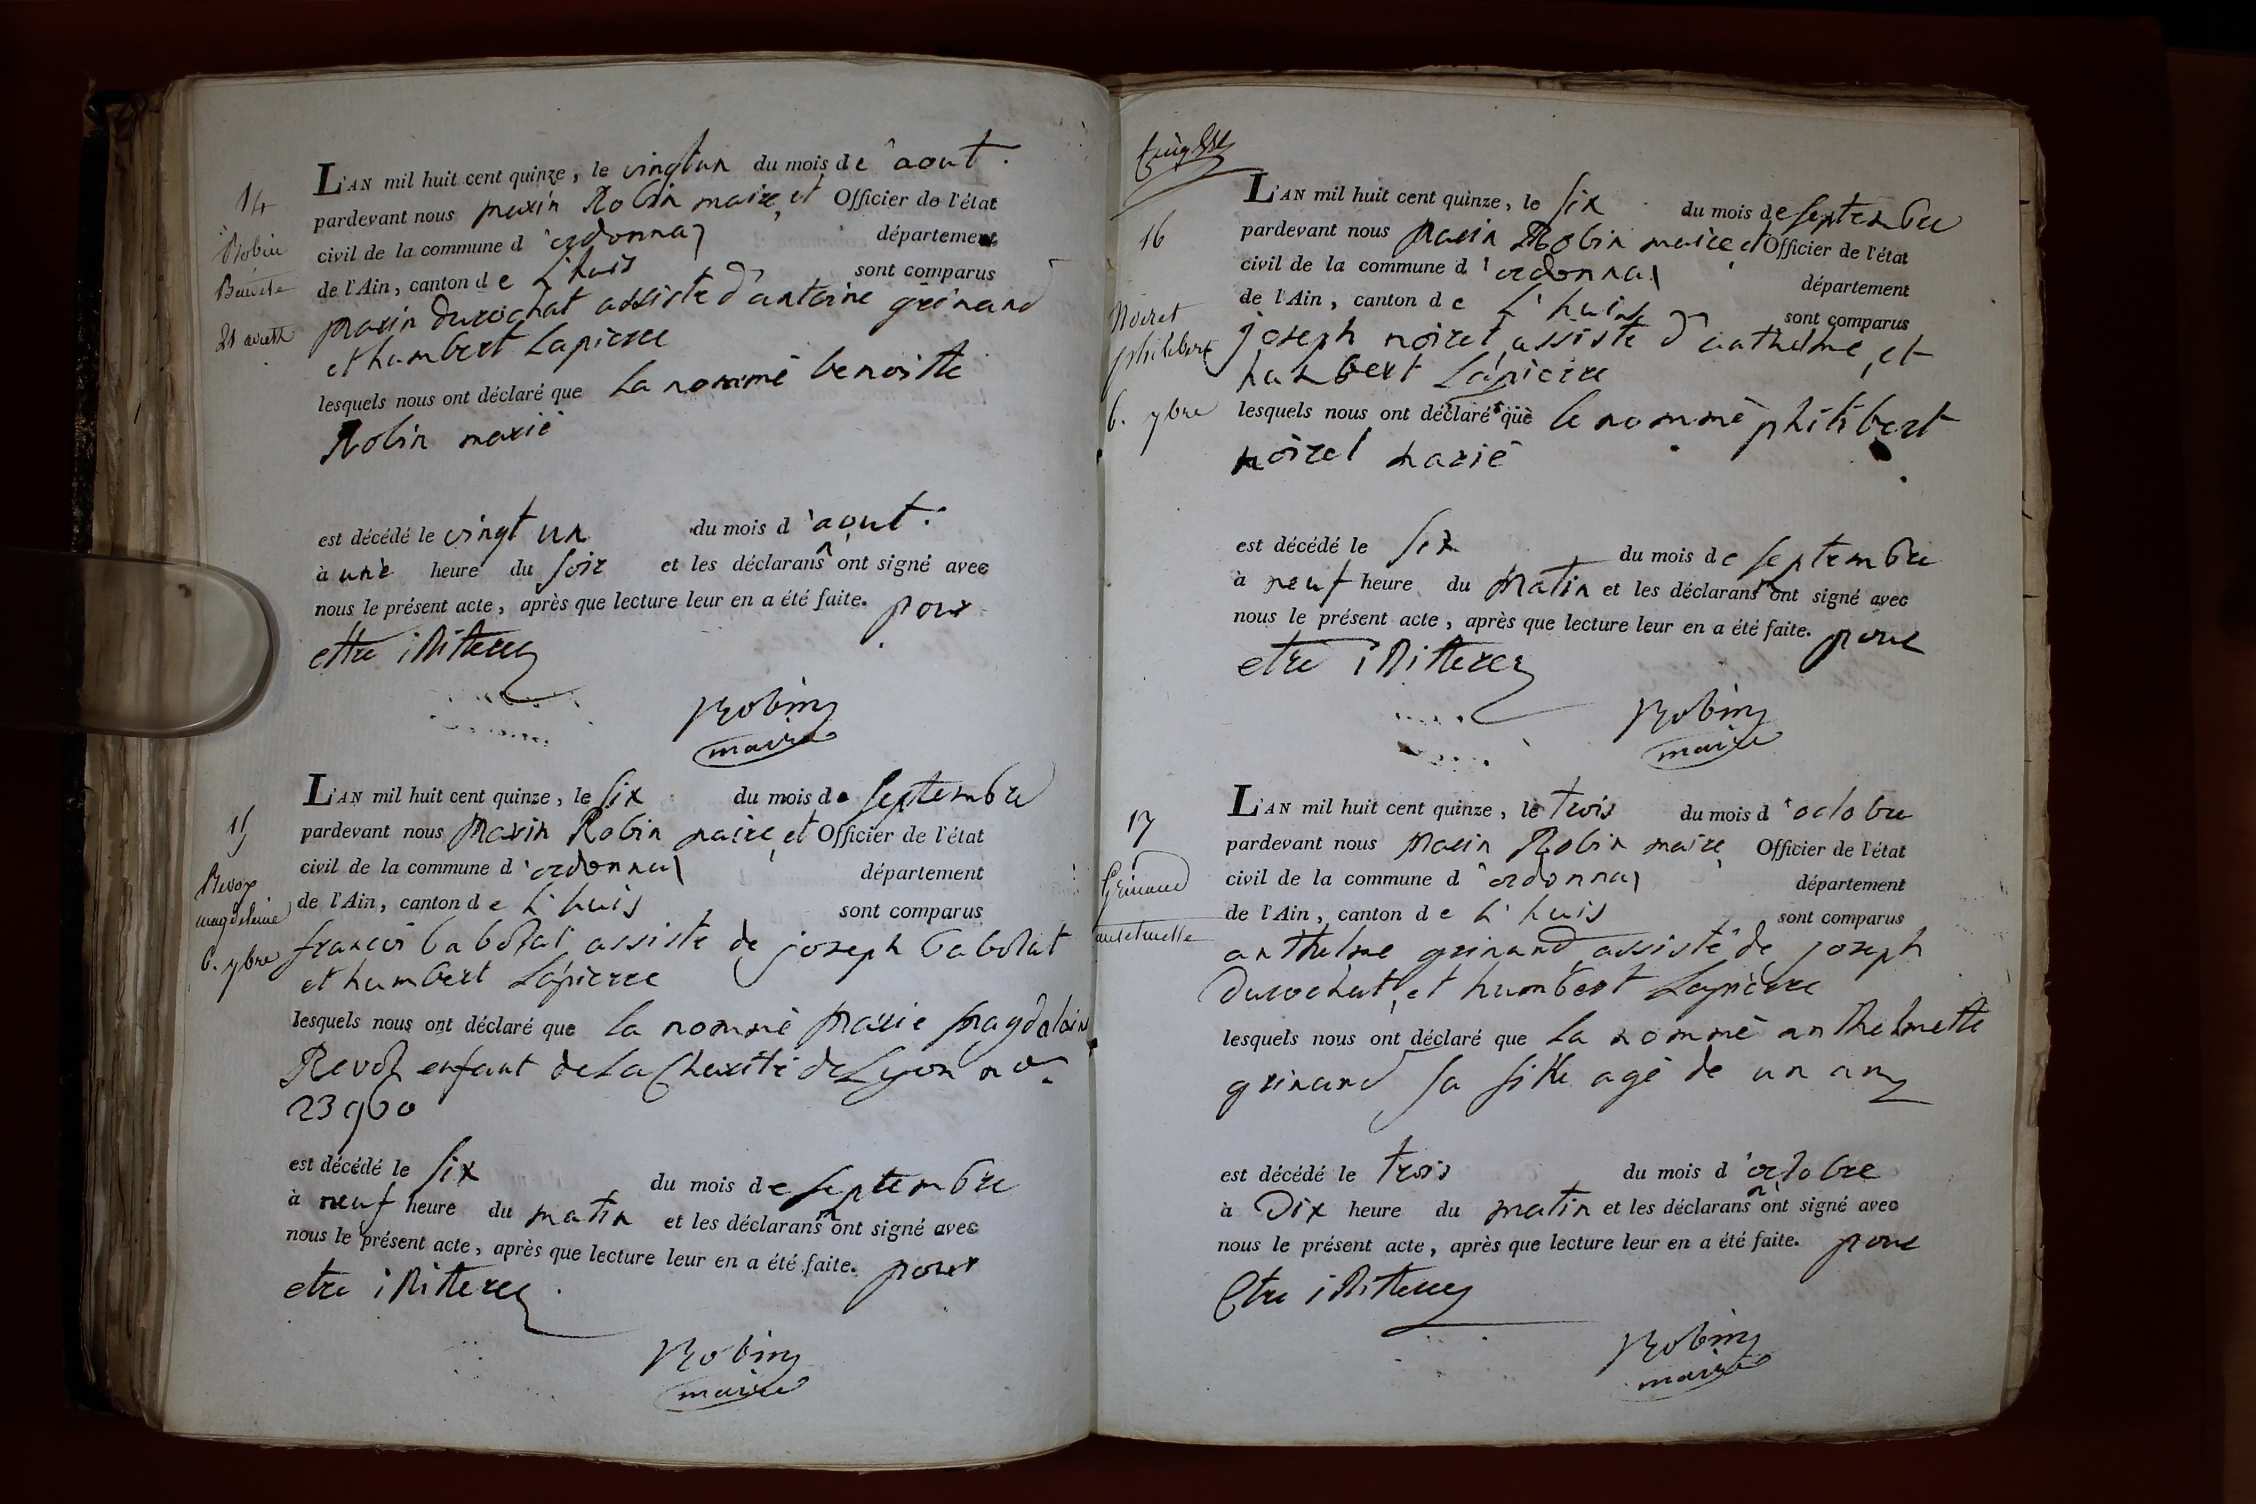 14
Robin
Benoite
21 aout
L'AN mil huit cent quinze, le vingtun du mois de aout.
pardevant nous marin Robin maire, et Officier de l'état
civil de la commune d'ordonnaz département
de l'Ain, canton de L'huis sont comparus
marin durochat assisté d'antoine grinand
et humbert Lapierre
lesquels nous ont déclaré que la nommé benoitte
Robin marié
est décédé le vingt un du mois d'aout.
à une heure du soir et les déclarans n'ont signé avec
nous le présent acte, après que lecture leur en a été faite. pour
etre illiteres
Robin
maire
15
Revox
magdeleine
6. 7bre
L'AN mil huit cent quinze, le six du mois de septembre
pardevant nous marin Robin maire, et Officier de l'état
civil de la commune d'ordonnaz département
de l'Ain, canton de L'huis sont comparus
francois babolat assisté de joseph babolat
et humbert Lapierre
lesquels nous ont déclaré que la nommé marie magdelaine
enfant de La Charité de Lyon no.
23960
est décédé le six du mois de septembre
à neuf heure du matin et les déclarans n'ont signé avec
nous le présent acte, après que lecture leur en a été faite. pour
etre illiteres
Robin
maire
16
Noiret
philibert
6. 7bre
L'AN mil huit cent quinze, le six du mois de septembre
pardevant nous marin Robin maire, et Officier de l'état
civil de la commune d'ordonnaz département
de l'Ain, canton de L'huis sont comparus
joseph noiret, assisté d'anthelme, et
humbert Lapierre
lesquels nous ont déclaré que le nommé philibert
noiret marié
est décédé le six du mois de septembre
à neuf heure du matin et les déclarans n'ont signé avec
nous le présent acte, après que lecture leur en a été faite. pour
etre illiteres
Robin
maire
17
Grinand
antelmette
L'AN mil huit cent quinze, le trois du mois d'octobre
pardevant nous marin Robin maire, Officier de l'état
civil de la commune d'ordonnaz département
de l'Ain, canton de L'huis sont comparus
anthelme grinand assisté de joseph
durochat, et humbert Lapierre
lesquels nous ont déclaré que la nommé anthelmette
grinand sa fille agé de un an
est décédé le trois du mois d'octobre
à Dix heure du matin et les déclarans n'ont signé avec
nous le présent acte, après que lecture leur en a été faite. pour
Etre illiteres
Robin
maire